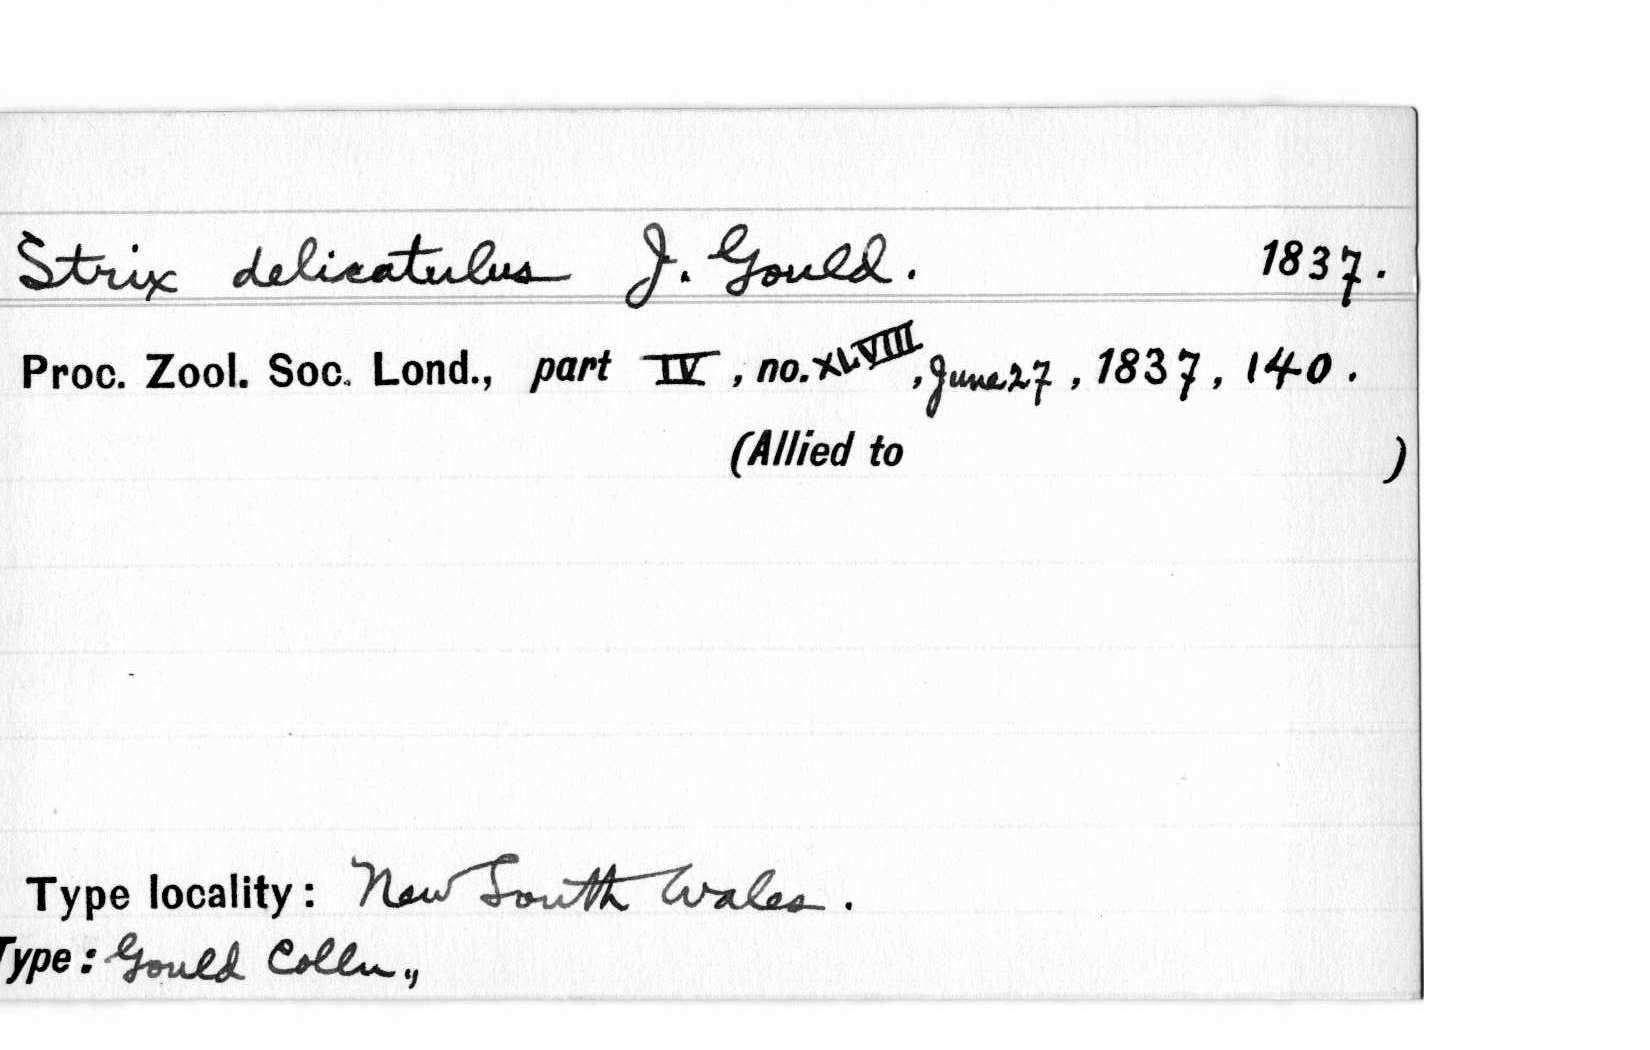 Strix delicatulus J. Gould. 1837.
Proc. Zool. Soc. Lond., part IV, no. XLVIII, June 27, 1837, 140.
(Allied to )
Type locality: New South Wales.
Type: Gould Colln.,